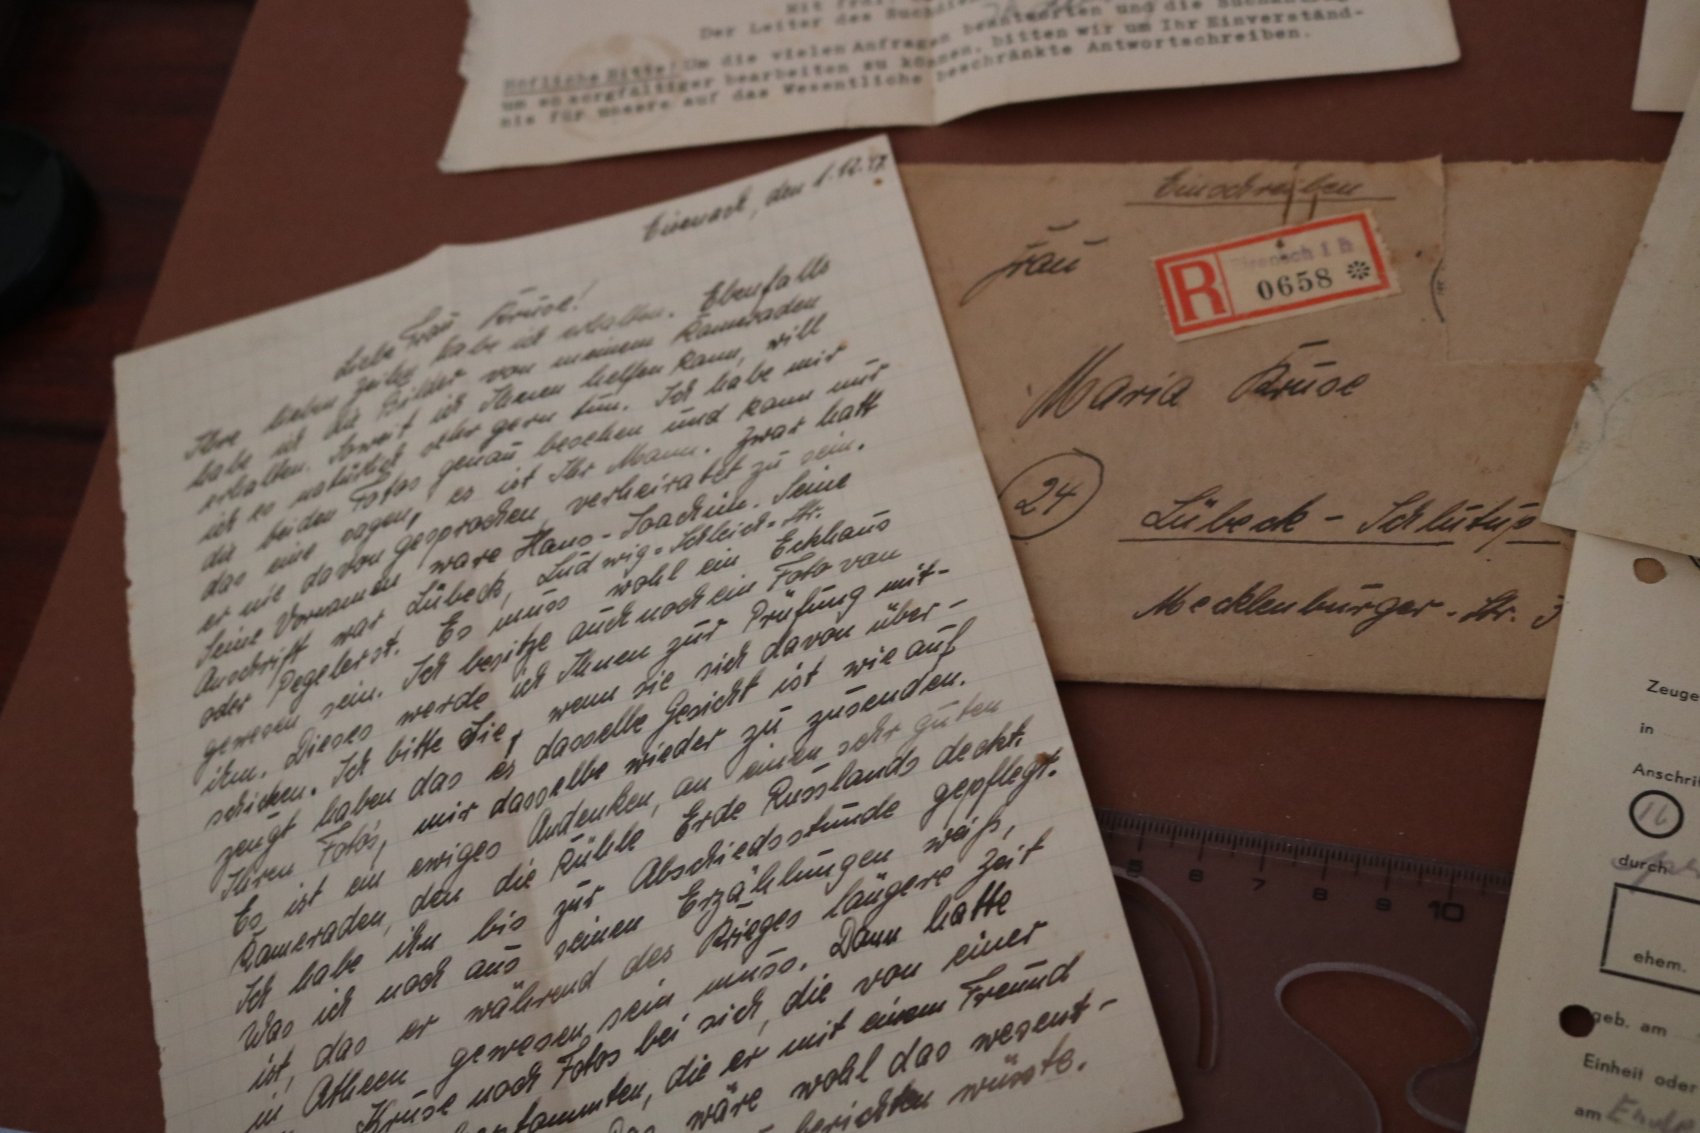 Mit fre
Der Leiter des Suchdie
Höfliche Bitte! Um die vielen Anfragen beantworten und die
um so sorgfältiger bearbeiten zu können, bitten wir um Ihr Einverständ-
nis für unsere auf das Wesentliche beschränkte Antwortschreiben.
Eisenach, den 1.12.47
Liebe Frau Kruse!
Ihre lieben Zeilen habe ich erhalten. Ebenfalls
habe ich die Bilder von meinem Kameraden
erhalten. Soweit ich Ihnen helfen kann, will
ich es natürlich sehr gern tun. Ich habe mir
die beiden Fotos genau besehen und kann nur
das eine sagen, es ist Ihr Mann. Zwar hatt
er nie davon gesprochen verheiratet zu sein.
Seine Vornamen ware Hans-Joachim. Seine
Anschrift war Lübeck, Ludwig-Schleich-Str.
oder Pegelerst. Es muss wohl ein Eckhaus
gewesen sein. Ich besitze auch noch ein Foto von
ihm. Dieses werde ich Ihnen zur Prüfung mit-
schicken. Ich bitte Sie, wenn sie sich davon über-
zeugt haben das es dasselbe Gesicht ist wie auf
Ihren Foto's, mir dasselbe wieder zu zusenden.
Es ist ein ewiges Andenken, an einen sehr guten
Kameraden, den die kühle Erde Russlands deckt.
Ich habe ihn bis zur Abschiedsstunde gepflegt.
Was ich noch aus seinen Erzählungen weiß,
ist, das er während des Krieges längere Zeit
in Atheen gewesen sein muss. Dann hatte
Kruse noch Fotos bei sich, die von einer
stammten, die er mit einem Freund
Das wäre wohl das wesent-
berichten wüsste.
Einschreiben
Frau
R Eisenach 1 b
0658
Maria Kruse
24 Lübeck - Schlutup
Mecklenburger-Str. 3
5 6 7 8 9 10
Zeuge
in
Anschri
16
durch
ehem.
geb. am
Einheit oder
am Ende